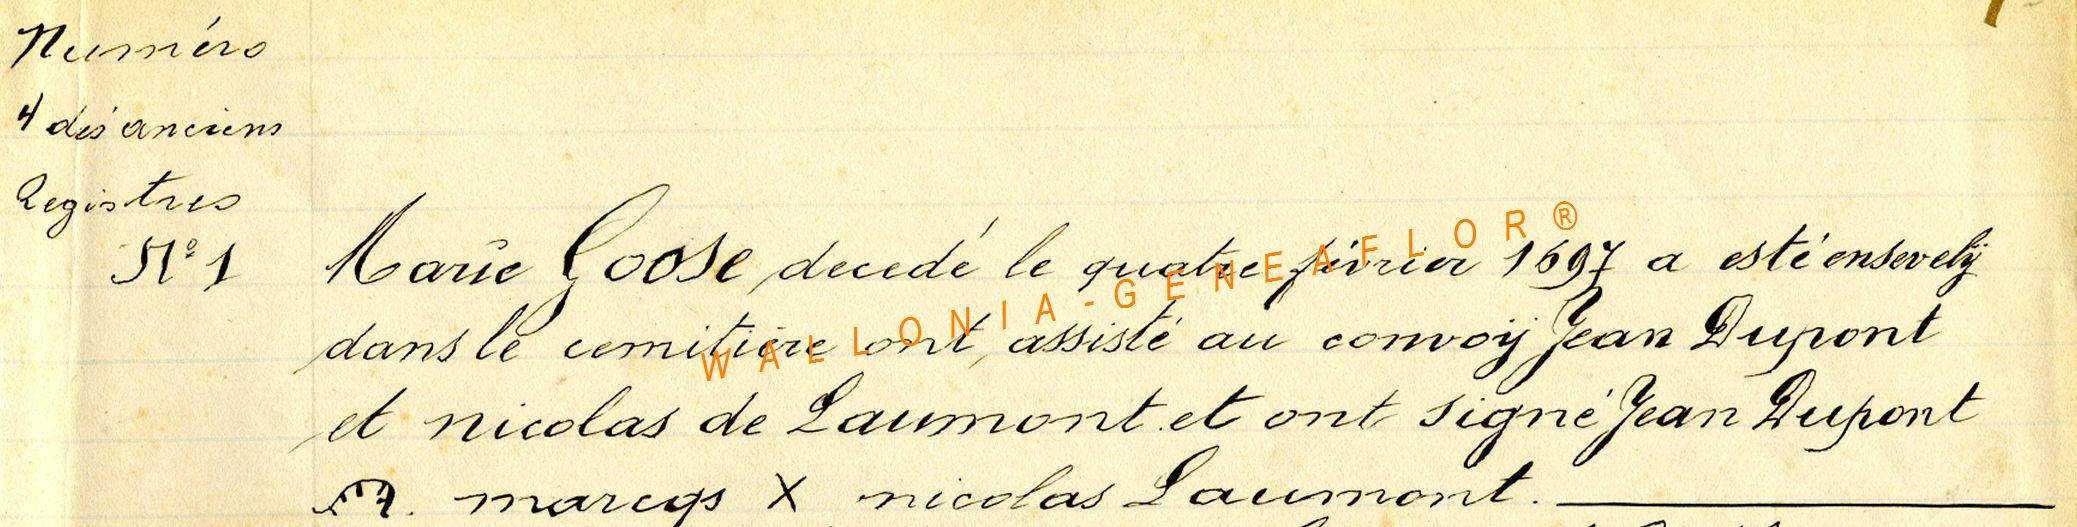 Numéro
4 des anciens
Registres
N° 1
Marie Goose decedé le quatre février 1697 a esté ensevelÿ
dans le cemitière ont assisté au convoÿ Jean Dupont
et nicolas de Laumont et ont signé Jean Dupont
marcqs X nicolas Laumont.
WALLONIA-GENEAFLOR®